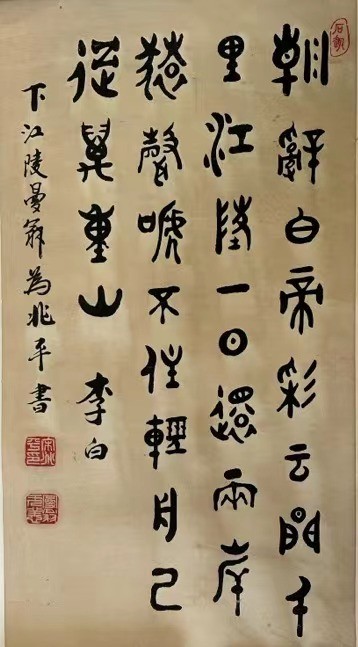 朝辭白帝彩云間千
里江陵一日還兩岸
猿聲啼不住輕舟已
過萬重山 李白
下江陵曼翁為兆平書